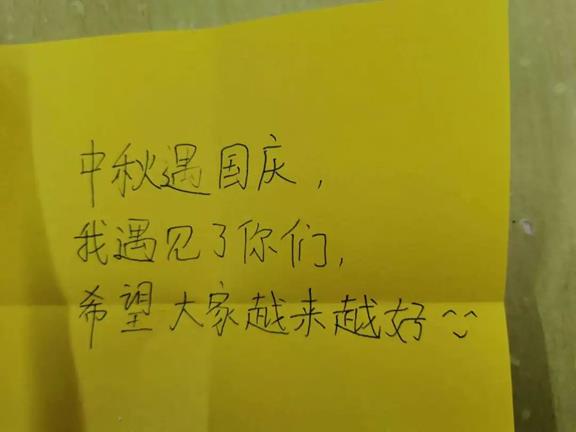 中秋遇国庆，
我遇见了你们，
希望大家越来越好^_^